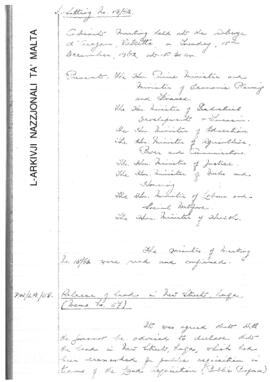 L-ARKIVJI NAZZJONALI TA' MALTA
Sitting No.
Cabinet Meeting held at the Auberge
d'Aragon Valletta on Tuesday, 18th
December, 1962 at
Present: The Hon. Prime Minister and
Minister of Economic Planning
and Finance
The Hon. Minister of Industrial
Development & Tourism
The Hon. Minister of Education
The Hon. Minister of Agriculture,
Power and Communications
The Hon. Minister of Justice
The Hon. Minister of Works and
Housing
The Hon. Minister of Labour and
Social Welfare
The Hon. Minister of Health
The Minutes of Meeting
were read and confirmed.
Release of lands in New Street,
(Memo No. 57)
It was agreed that
the Governor be advised to declare that
the lands in New Street, which had
been demanded for public acquisition in
terms of the Land Acquisition (Public Purposes)